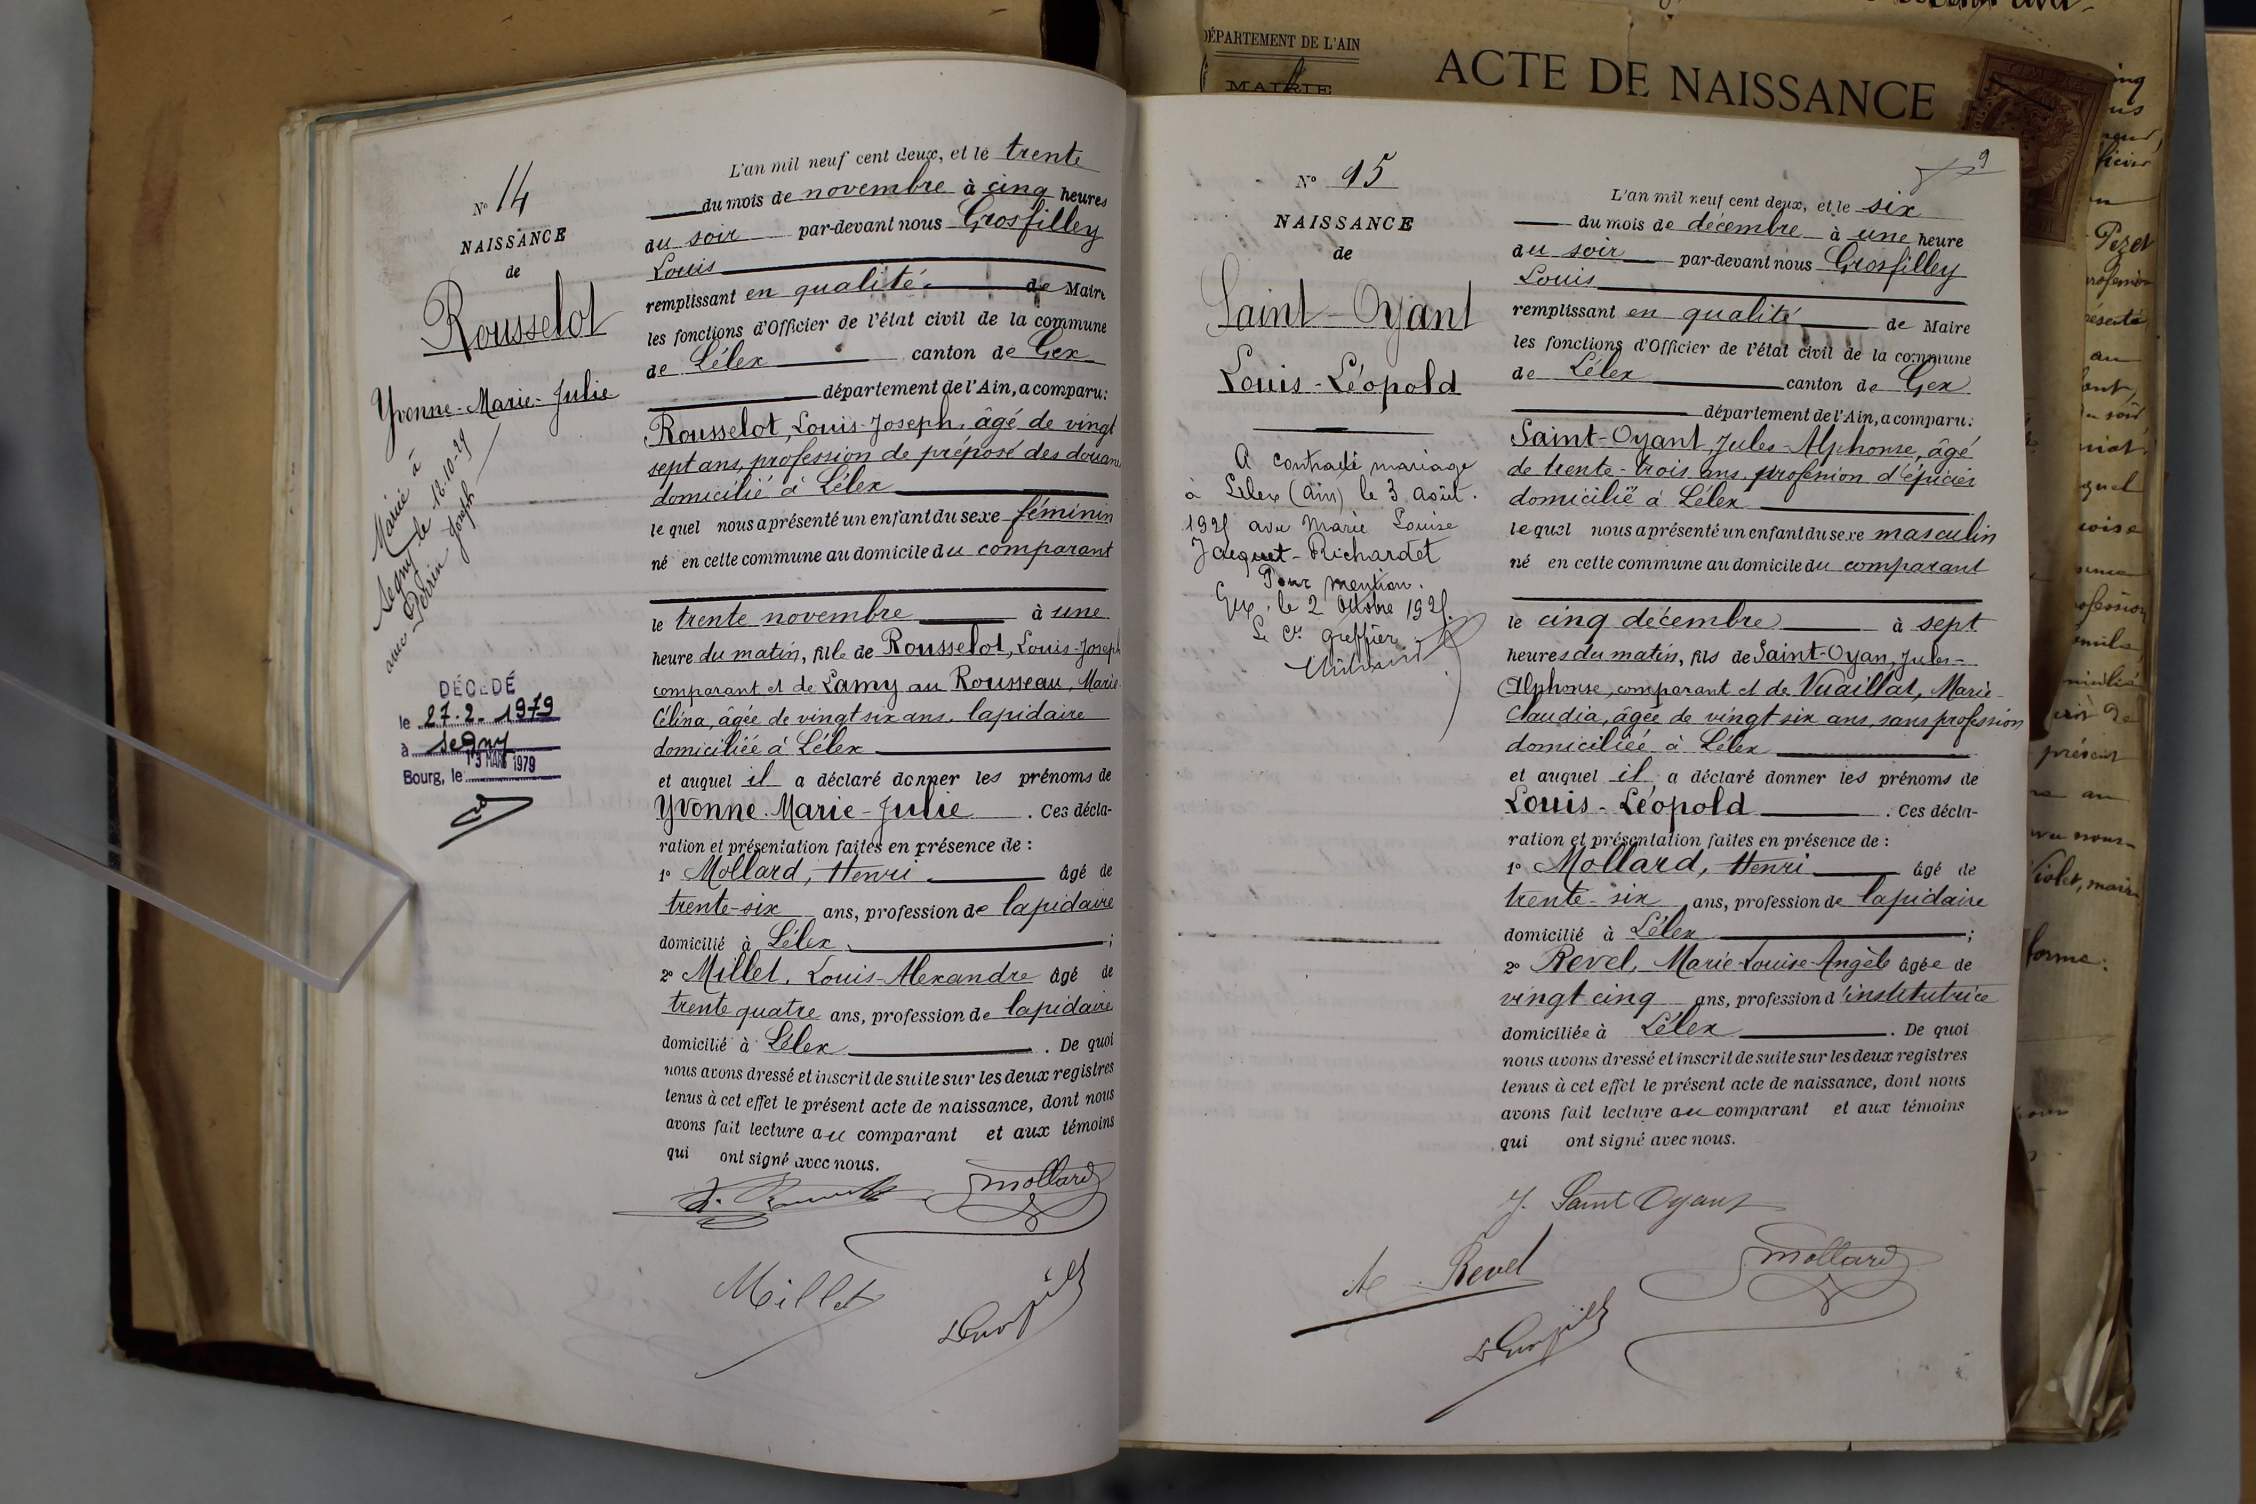 DÉPARTEMENT DE L'AIN
MAIRIE
ACTE DE NAISSANCE
N° 14
NAISSANCE
de
Rousselot
Yvonne-Marie-Julie
Marié à
Segny le 12-10-29
avec Perrin Joseph
DÉCÉDÉ
le 27.2.1979
à Segny
Bourg, le 13 MARS 1979
L'an mil neuf cent deux, et le trente
du mois de novembre à cinq heures
du soir par-devant nous Grosfilley
Louis
remplissant en qualité de Maire
les fonctions d'Officier de l'état civil de la commune
de Lélex canton de Gex
département de l'Ain, a comparu:
Rousselot, Louis-Joseph, âgé de vingt
sept ans, profession de préposé des douanes
domicilié à Lélex
le quel nous a présenté un enfant du sexe féminin
né en cette commune au domicile du comparant
le trente novembre à une
heure du matin, fille de Rousselot, Louis-Joseph
comparant et de Lamy au Rousseau, Marie
Célina, âgée de vingt six ans, lapidaire
domiciliée à Lélex
et auquel il a déclaré donner les prénoms de
Yvonne-Marie-Julie. Ces décla-
ration et présentation faites en présence de :
1° Mollard, Henri âgé de
trente-six ans, profession de lapidaire
domicilié à Lélex ;
2° Millet, Louis-Alexandre âgé de
trente quatre ans, profession de lapidaire
domicilié à Lélex. De quoi
nous avons dressé et inscrit de suite sur les deux registres
tenus à cet effet le présent acte de naissance, dont nous
avons fait lecture au comparant et aux témoins
qui ont signé avec nous.
Mollard
Millet
9
N° 15
NAISSANCE
de
Saint-Oyant
Louis-Léopold
A contracté mariage
à Lélex (ain) le 3 août.
avec Marie Louise
Jacquet-Richardet
Pour mention.
Gex, le 2 Octobre
Le Cis greffier
L'an mil neuf cent deux, et le six
du mois de décembre à une heure
du soir par-devant nous Grosfilley
Louis
remplissant en qualité de Maire
les fonctions d'Officier de l'état civil de la commune
de Lélex canton de Gex
département de l'Ain, a comparu:
Saint-Oyant, Jules-Alphonse, âgé
de trente-trois ans, profession d'épicier
domicilié à Lélex
le quel nous a présenté un enfant du sexe masculin
né en cette commune au domicile du comparant
le cinq décembre à sept
heures du matin, fils de Saint-Oyan, Jules-
Alphonse, comparant et de Vuaillat, Marie-
Claudia, âgée de vingt six ans, sans profession
domiciliée à Lélex
et auquel il a déclaré donner les prénoms de
Louis-Léopold. Ces décla-
ration et présentation faites en présence de :
1° Mollard, Henri âgé de
trente-six ans, profession de lapidaire
domicilié à Lélex ;
2° Revel, Marie-Louise-Angèle âgée de
vingt cinq ans, profession d'institutrice
domiciliée à Lélex. De quoi
nous avons dressé et inscrit de suite sur les deux registres
tenus à cet effet le présent acte de naissance, dont nous
avons fait lecture au comparant et aux témoins
qui ont signé avec nous.
J. Saint Oyant
Revel
Mollard
Pezet
présent
Violet, maire
forme: